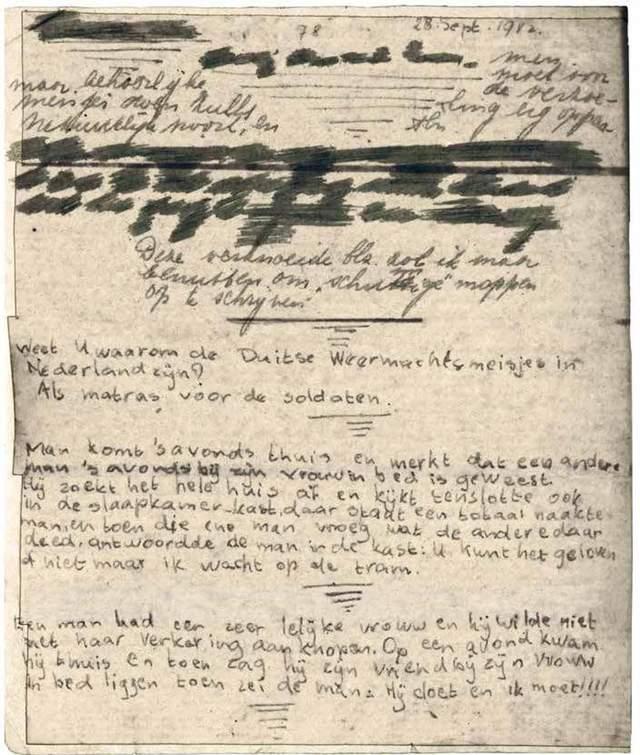 78
28. Sept. 1942.
men
maar behoorlijke
moet om
de
mensen
en
Deze verknoeide blz zal ik maar
benutten om „schuttige" moppen
op te schrijven
Weet U waarom de Duitse Weermachtsmeisjes in
Nederland zijn?
Als matras voor de soldaten.
Man komt 's avonds thuis en merkt dat een andere
man 's avonds bij zijn vrouw in bed is geweest.
Hij zoekt het hele huis af en kijkt tenslotte ook
in de slaapkamer-kast, daar stadt een totaal naakte
man, en toen die ene man vroeg wat de andere daar
deed, antwoordde de man in de kast: U kunt het geloven
of niet maar ik wacht op de tram.
Een man had een zeer lelijke vrouw en hij wilde niet
met haar verkering aanknopen. Op een avond kwam
hij thuis en toen zag hij zijn vriend bij zijn vrouw
in bed liggen toen zei de man: Hij doet en ik moet!!!!